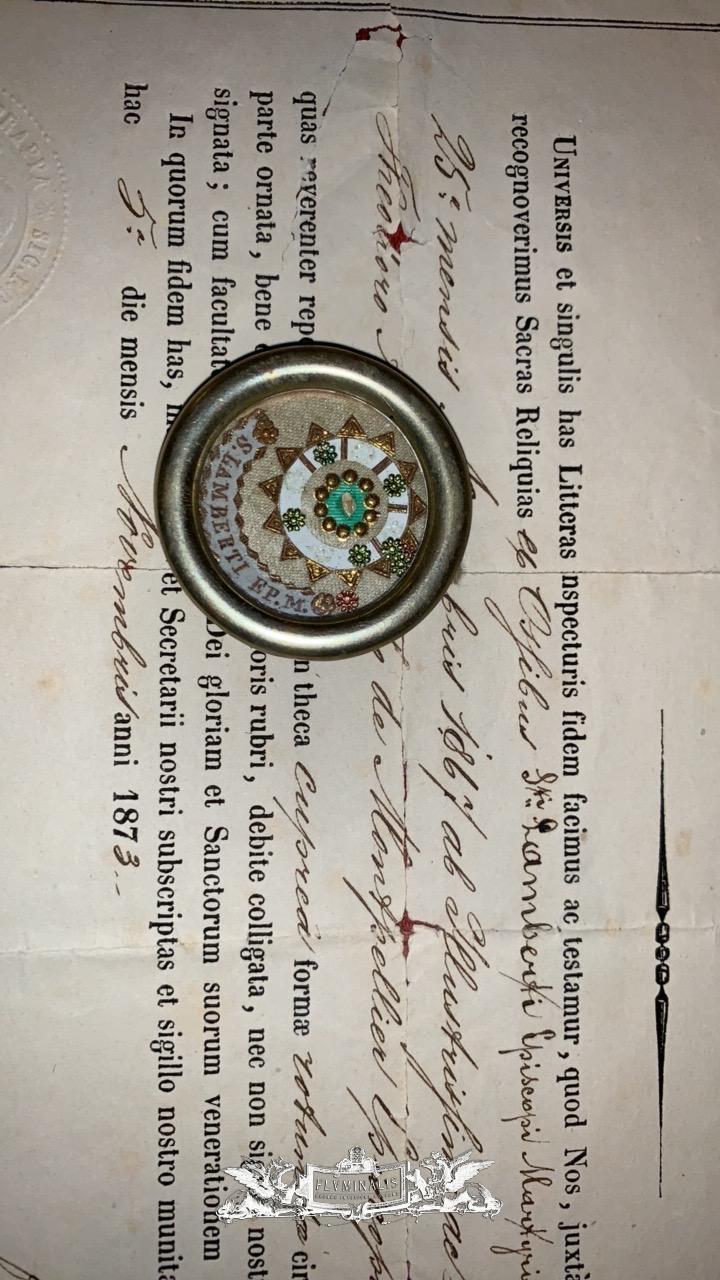 UNIVERSIS et singulis has Litteras inspecturis fidem facimus ac testamur, quod Nos, juxtà
recognoverimus Sacras Reliquias ex Ossibus Sti. Lamberti Episcopi Martyri
25.a mensis bris 1867 ab Illustrissimo ac
Theodoro de Montpellier
quas reverenter rep n theca cupreâ formæ rotundæ cir
parte ornata, bene oris rubri, debite colligata, nec non sig nost
signata; cum facultat Dei gloriam et Sanctorum suorum venerationem
In quorum fidem has, m et Secretarii nostri subscriptas et sigillo nostro munita
hac 5.a die mensis Novembris anni 1873..
S. LAMBERTI EP. M.
TRAPPA SIG.
FLUMINALIS